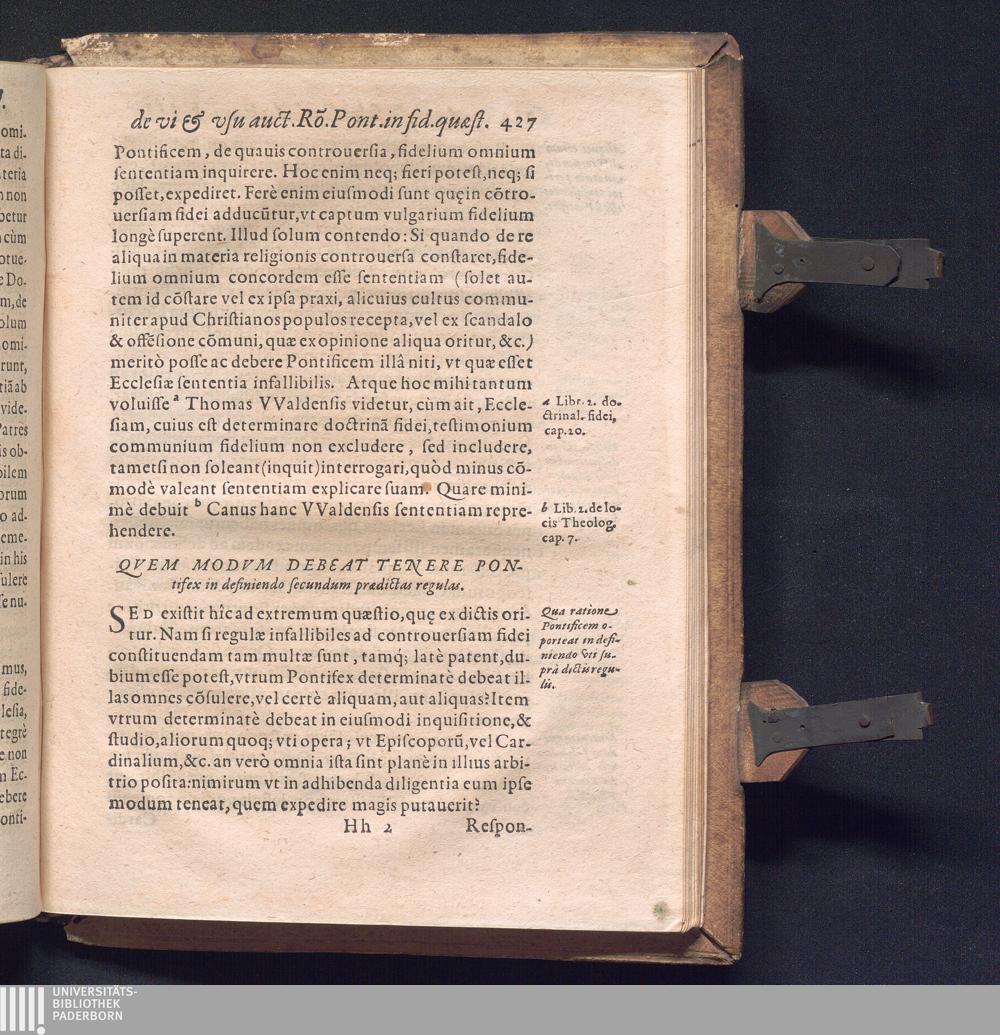 de vi & vſu auct. Rõ. Pont. in fid. quæſt. 427
Pontificem, de quauis controuerſia, fidelium omnium
ſententiam inquirere. Hoc enim neq; fieri poteſt, neq; ſi
poſſet, expediret. Ferè enim eiuſmodi ſunt quę in cõtro-
uerſiam fidei adducũtur, vt captum vulgarium fidelium
longè ſuperent. Illud ſolum contendo: Si quando de re
aliqua in materia religionis controuerſa conſtaret, fide-
lium omnium concordem eſſe ſententiam (ſolet au-
tem id cõſtare vel ex ipſa praxi, alicuius cultus commu-
niter apud Chriſtianos populos recepta, vel ex ſcandalo
& offẽſione cõmuni, quæ ex opinione aliqua oritur, &c.)
meritò poſſe ac debere Pontificem illâ niti, vt quæ eſſet
Eccleſiæ ſententia infallibilis. Atque hoc mihi tantum
voluiſſe a Thomas VValdenſis videtur, cùm ait, Eccle-
ſiam, cuius eſt determinare doctrinã fidei, teſtimonium
communium fidelium non excludere, ſed includere,
tametſi non ſoleant (inquit) interrogari, quòd minus cõ-
modè valeant ſententiam explicare ſuam. Quare mini-
mè debuit b Canus hanc VValdenſis ſententiam repre-
hendere.
a Libr. 2. do-
ctrinal. fidei,
cap. 20.
b Lib. 2. de lo-
cis Theolog.
cap. 7.
QVEM MODVM DEBEAT TENERE PON-
tifex in definiendo ſecundum prædictas regulas.
SED exiſtit hîc ad extremum quæſtio, quę ex dictis ori-
tur. Nam ſi regulæ infallibiles ad controuerſiam fidei
conſtituendam tam multæ ſunt, tamq́; latè patent, du-
bium eſſe poteſt, vtrum Pontifex determinatè debeat il-
las omnes cõſulere, vel certè aliquam, aut aliquas? Item
vtrum determinatè debeat in eiuſmodi inquiſitione, &
ſtudio, aliorum quoq; vti opera; vt Epiſcoporũ, vel Car-
dinalium, &c. an verò omnia iſta ſint planè in illius arbi-
trio poſita: nimirum vt in adhibenda diligentia eum ipſe
modum teneat, quem expedire magis putauerit?
Qua ratione
Pontificem o-
porteat in defi-
niendo vti ſu-
prà dictis regu-
lis.
Hh 2 Reſpon-
UNIVERSITÄTS-
BIBLIOTHEK
PADERBORN